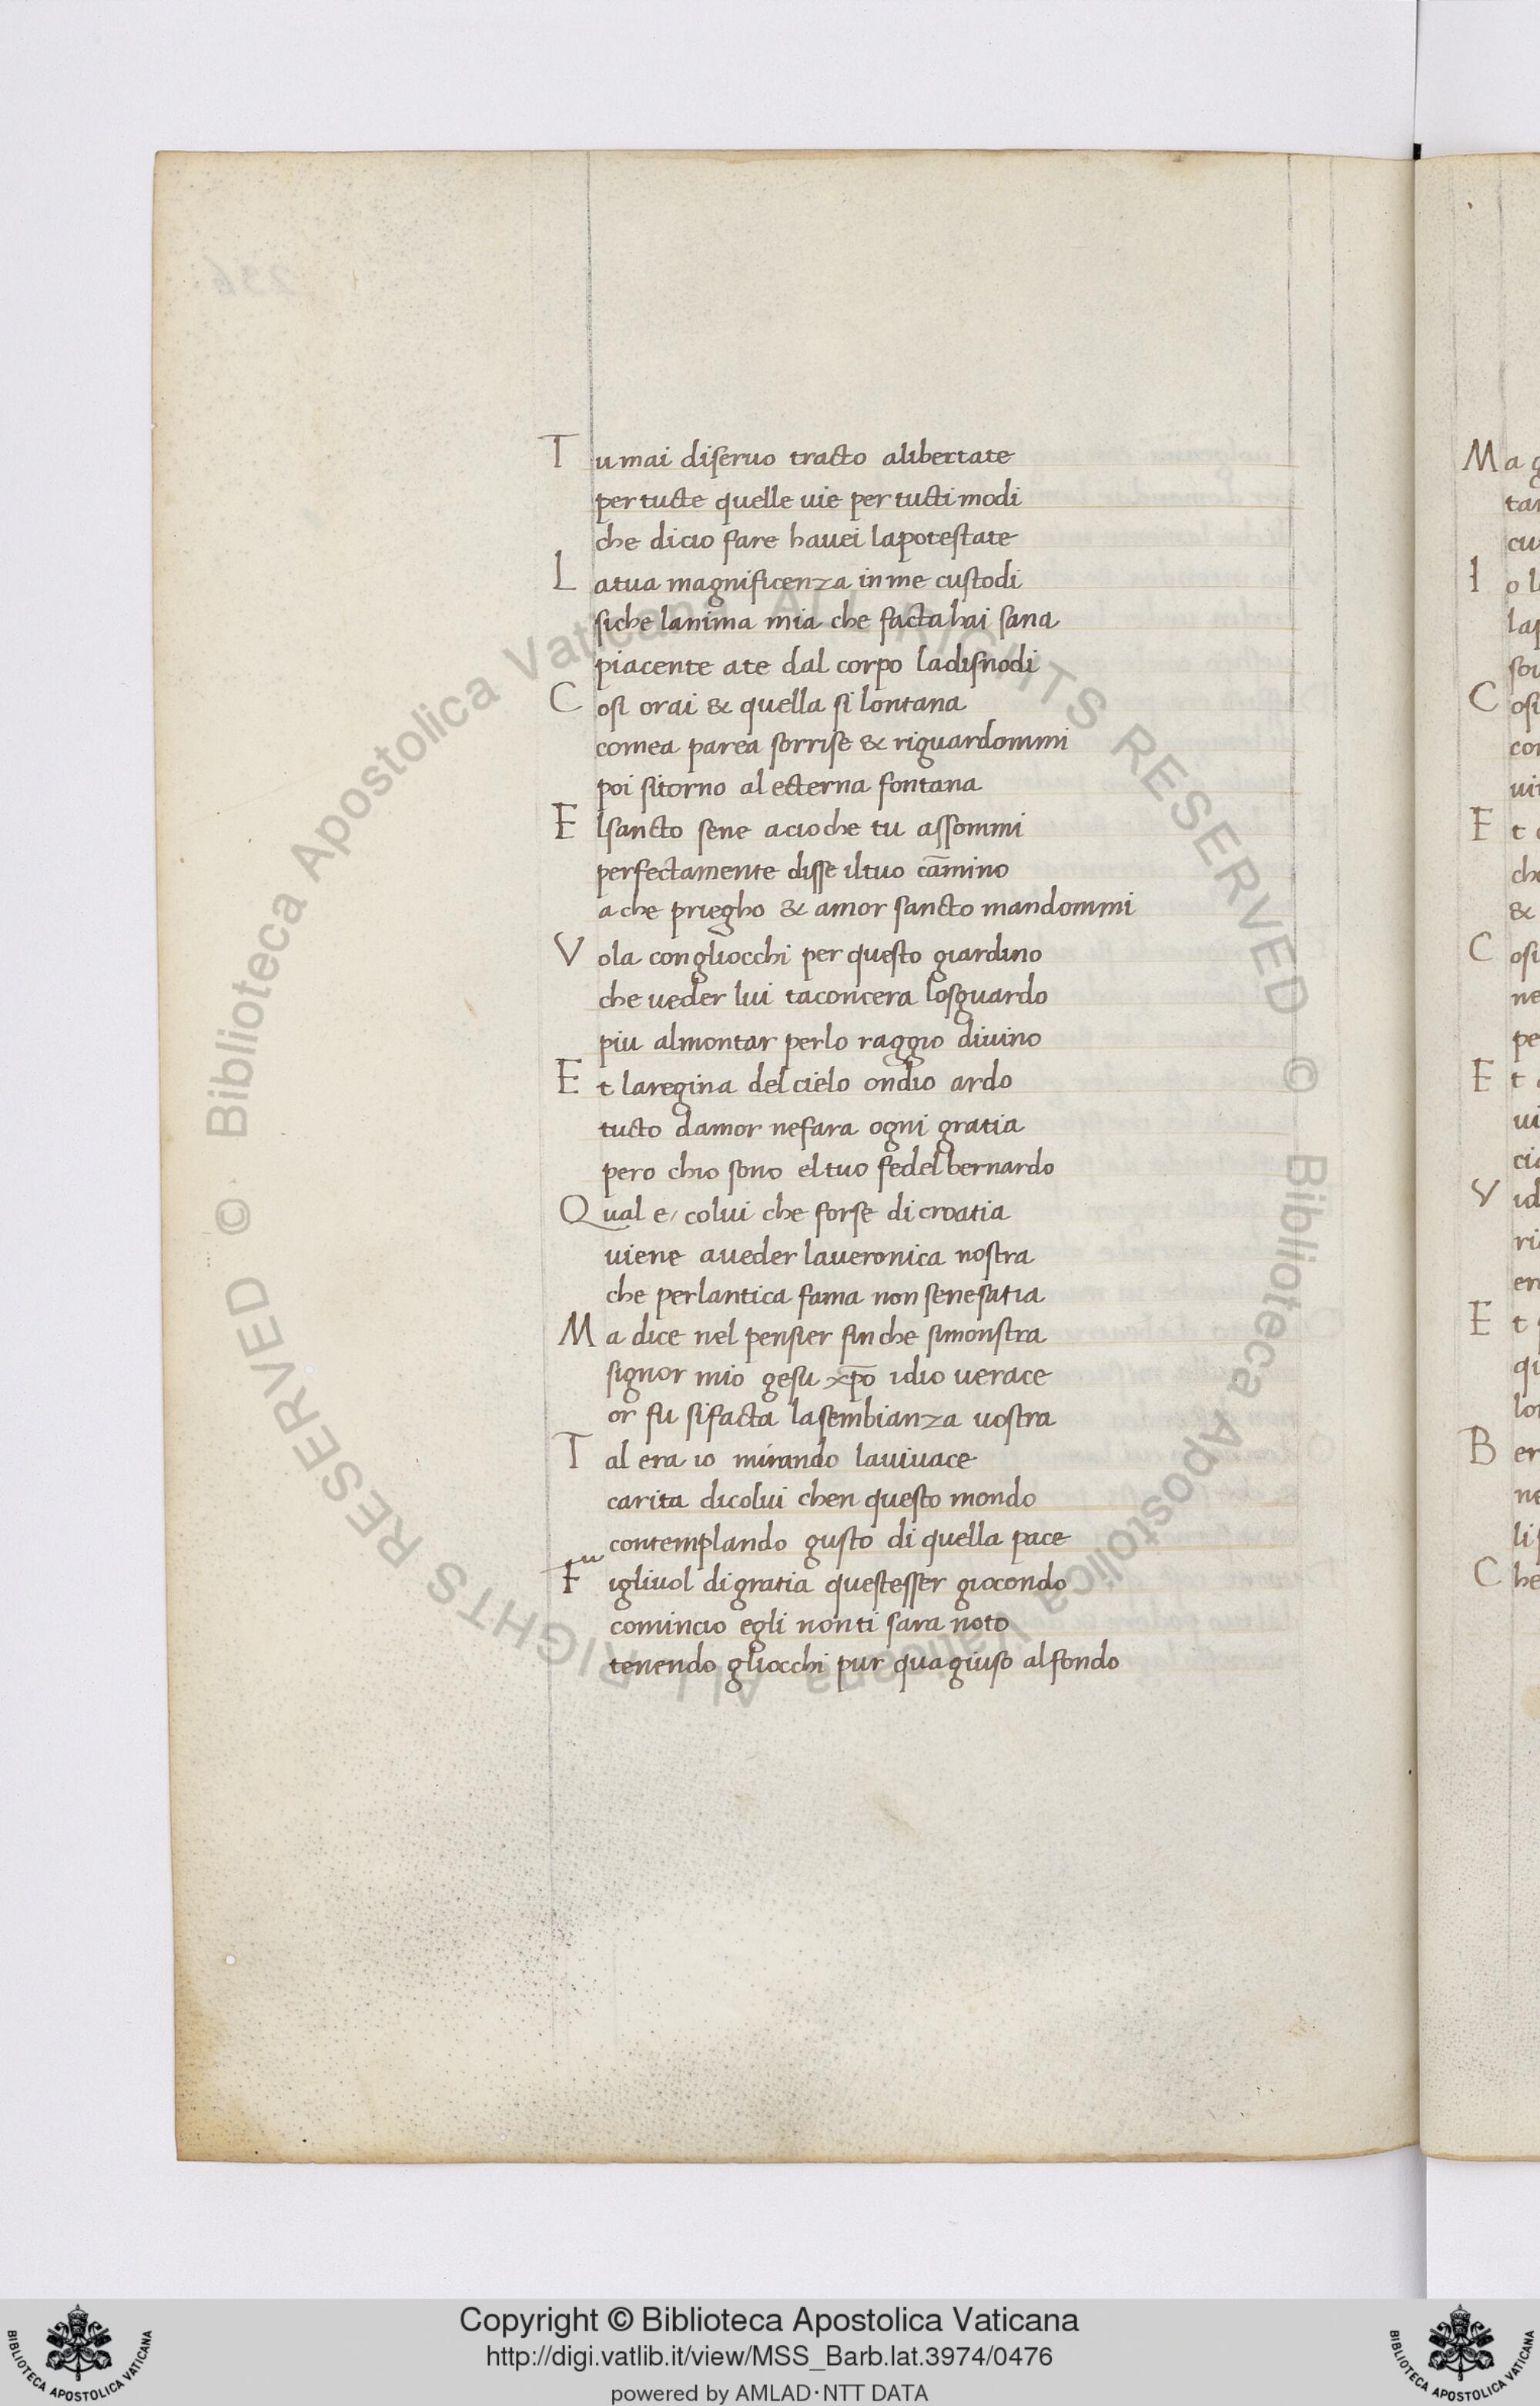 Tu mai diseruo tracto alibertate
per tucte quelle uie per tucti modi
che dicio fare hauei lapotestate
La tua magnificenza inme custodi
siche lanima mia che facta hai sana
piacente ate dal corpo ladisnodi
Cosi orai & quella si lontana
comea parea sorrise & riguardommi
poi sitorno al ecterna fontana
Elsancto sene acioche tu assommi
perfectamente disse iltuo cām̄ino
a che priegho & amor sancto mandommi
Vola congliocchi per questo giardino
che ueder lui taconcera losguardo
piu almontar perlo raggio diuino
Et laregina del cielo ondio ardo
tucto damor nefara ogni gratia
pero chio sono eltuo fedel bernardo
Qual e/ colui che forse di croatia
uiene aueder laueronica nostra
che perlantica fama non senesatia
Ma dice nel pensier finche simonstra
signor mio gesu xp̄o idio uerace
or fu sifacta lasembianza uostra
Tal era io mirando lauiuace
carita dicolui chen questo mondo
contemplando gusto di quella pace
Figliuol digratia questesser giocondo
comincio egli nonti sara noto
tenendo gliocchi pur quagiuso alfondo
Ma
I
Cosi
Et
che
&
Cosi
ne
pe
Et
ui
V
ri
Et
B
C
© Biblioteca Apostolica Vaticana ALL RIGHTS RESERVED © Biblioteca Apostolica Vaticana ALL RIGHTS RESERVED
236
Copyright © Biblioteca Apostolica Vaticana
http://digi.vatlib.it/view/MSS_Barb.lat.3974/0476
powered by AMLAD·NTT DATA
BIBLIOTECA APOSTOLICA VATICANA
BIBLIOTECA APOSTOLICA VATICANA